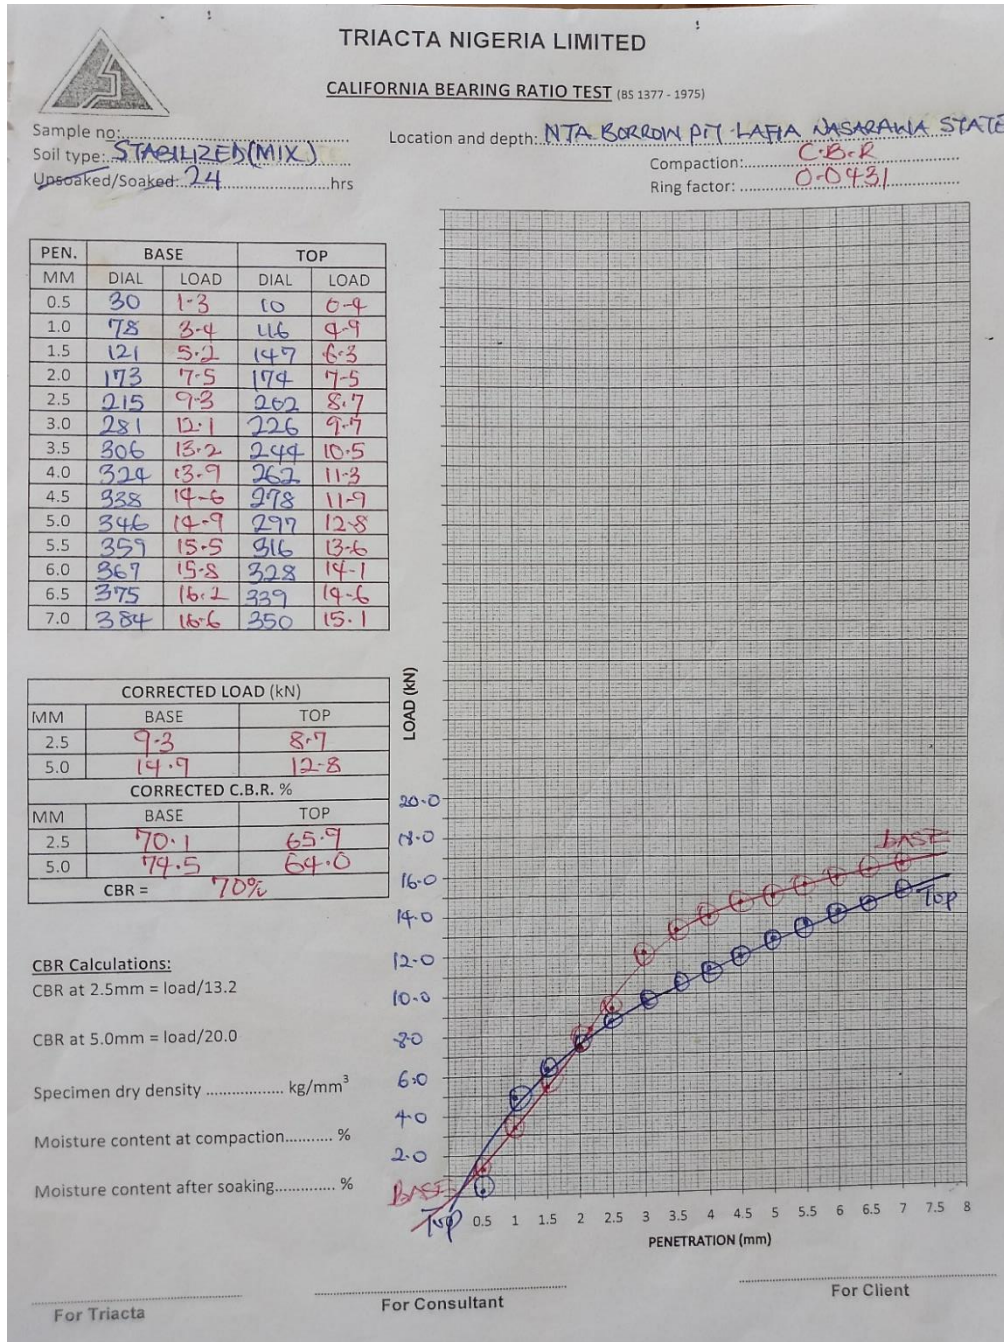 TRIACTA NIGERIA LIMITED
CALIFORNIA BEARING RATIO TEST (BS 1377 - 1975)
Sample no:
Location and depth: NTA BORROW PIT LAFIA NASARAWA STATE
Soil type: STABILIZED (MIX)
Compaction: C.B.R
Unsoaked/Soaked: 24 hrs
Ring factor: 0.0431
PEN. BASE TOP
MM DIAL LOAD DIAL LOAD
0.5 30 1-3 10 0-4
1.0 78 3-4 116 4-9
1.5 121 5.2 147 6-3
2.0 173 7-5 174 7-5
2.5 215 9-3 202 8.7
3.0 281 12.1 226 9-7
3.5 306 13.2 244 10.5
4.0 324 13.9 262 11-3
4.5 338 14-6 278 11-9
5.0 346 14-9 297 12-8
5.5 359 15.5 316 13-6
6.0 367 15-8 328 14-1
6.5 375 16.2 339 14-6
7.0 384 16-6 350 15.1
CORRECTED LOAD (kN)
MM BASE TOP
2.5 9-3 8.7
5.0 14.9 12-8
CORRECTED C.B.R. %
MM BASE TOP
2.5 70.1 65.9
5.0 74.5 64.0
CBR = 70%
CBR Calculations:
CBR at 2.5mm = load/13.2
CBR at 5.0mm = load/20.0
Specimen dry density ................. kg/mm³
Moisture content at compaction.......... %
Moisture content after soaking............. %
LOAD (kN)
20.0
18.0
16.0
14.0
12.0
10.0
8.0
6.0
4.0
2.0
BASE
Top
BASE
Top
0.5 1 1.5 2 2.5 3 3.5 4 4.5 5 5.5 6 6.5 7 7.5 8
PENETRATION (mm)
For Triacta
For Consultant
For Client